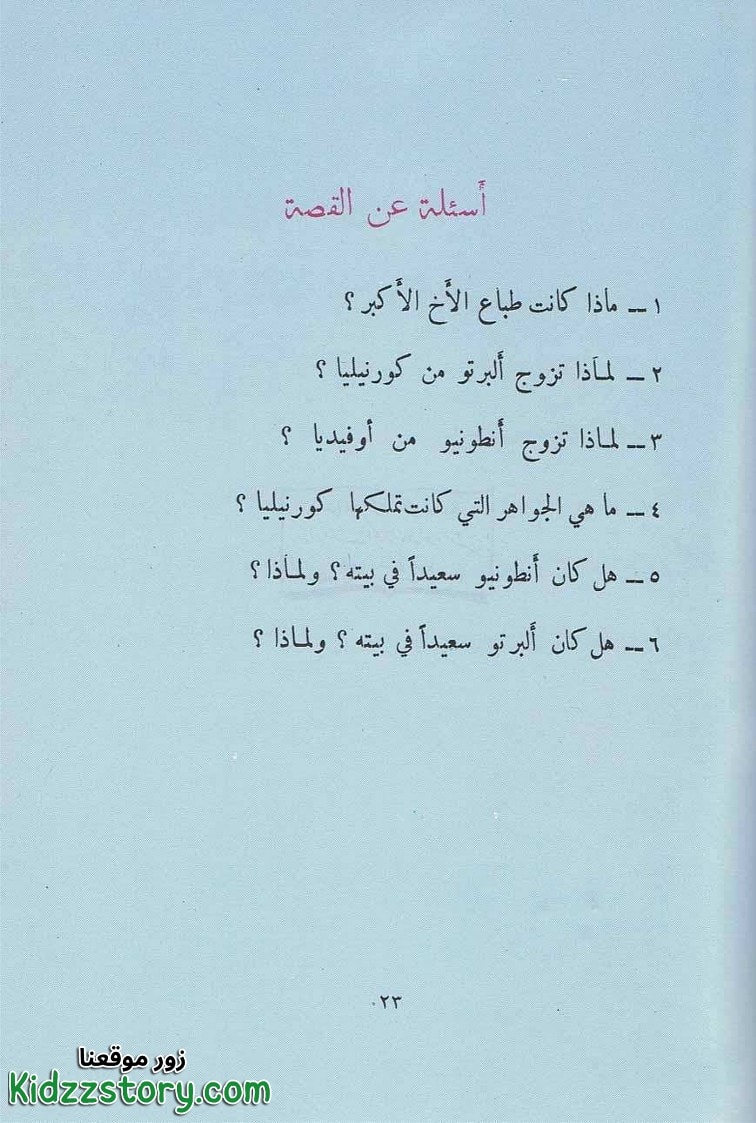 أَسئلة عن القصة
١ — ماذا كانت طباع الأَخ الأَكبر ؟
٢ — لماذا تزوج أَلبرتو من كورنيليا ؟
٣ — لماذا تزوج أَنطونيو من أوفيديا ؟
٤ — ما هي الجواهر التي كانت تملكها كورنيليا ؟
٥ — هل كان أَنطونيو سعيداً في بيته ؟ ولماذا ؟
٦ — هل كان أَلبرتو سعيداً في بيته ؟ ولماذا ؟
٢٣
زور موقعنا
Kidzzstory.com